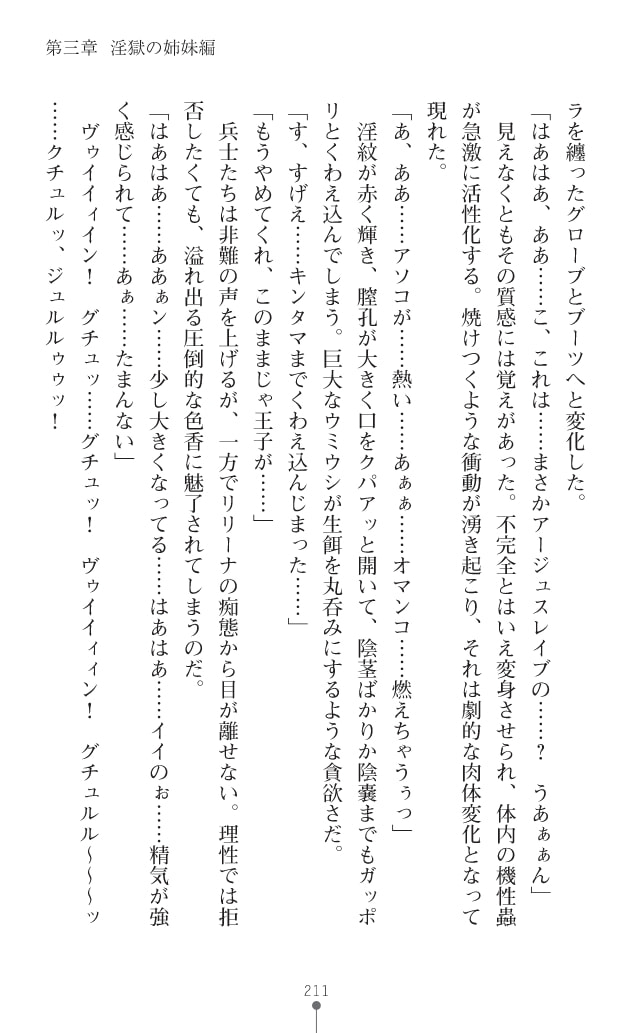 第三章 淫獄の姉妹編
ラを纏ったグローブとブーツへと変化した。
「はあはあ、ああ……こ、これは……まさかアージュスレイブの……? うあぁぁん」
見えなくともその質感には覚えがあった。不完全とはいえ変身させられ、体内の機性蟲
が急激に活性化する。焼けつくような衝動が湧き起こり、それは劇的な肉体変化となって
現れた。
「あ、ああ……アソコが……熱い……あぁぁ……オマンコ……燃えちゃうぅっ」
淫紋が赤く輝き、膣孔が大きく口をクパアッと開いて、陰茎ばかりか陰嚢までもガッポ
リとくわえ込んでしまう。巨大なウミウシが生餌を丸呑みにするような貪欲さだ。
「す、すげえ……キンタマまでくわえ込んじまった……」
「もうやめてくれ、このままじゃ王子が……」
兵士たちは非難の声を上げるが、一方でリリーナの痴態から目が離せない。理性では拒
否したくても、溢れ出る圧倒的な色香に魅了されてしまうのだ。
「はあはぁ……ああぁン……少し大きくなってる……はあはぁ……イイのぉ……精気が強
く感じられて……あぁ……たまんない」
ヴゥイイィイン! グチュッ……グチュッ! ヴゥイイィィン! グチュルル～～～ッ
……クチュルッ、ジュルルゥゥッ!
211